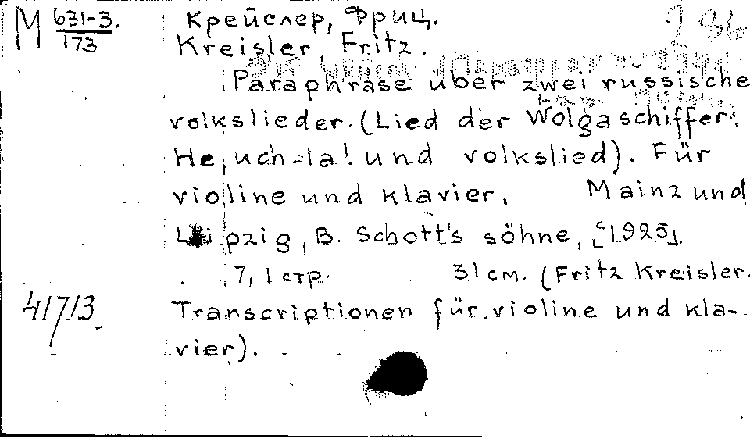 М 631-3. Крейслер, Фриц.
173 Kreisler Fritz.
Paraphrase über zwei russische
volkslieder. (Lied der Wolgaschiffer:
He, uch-la! und volkslied). Für
violine und klavier, Mainz und
Leipzig, B. Schott's söhne, [1925].
7, 1 стр. 31 см. (Fritz Kreisler.
41713 Transcriptionen für violine und kla-
vier).